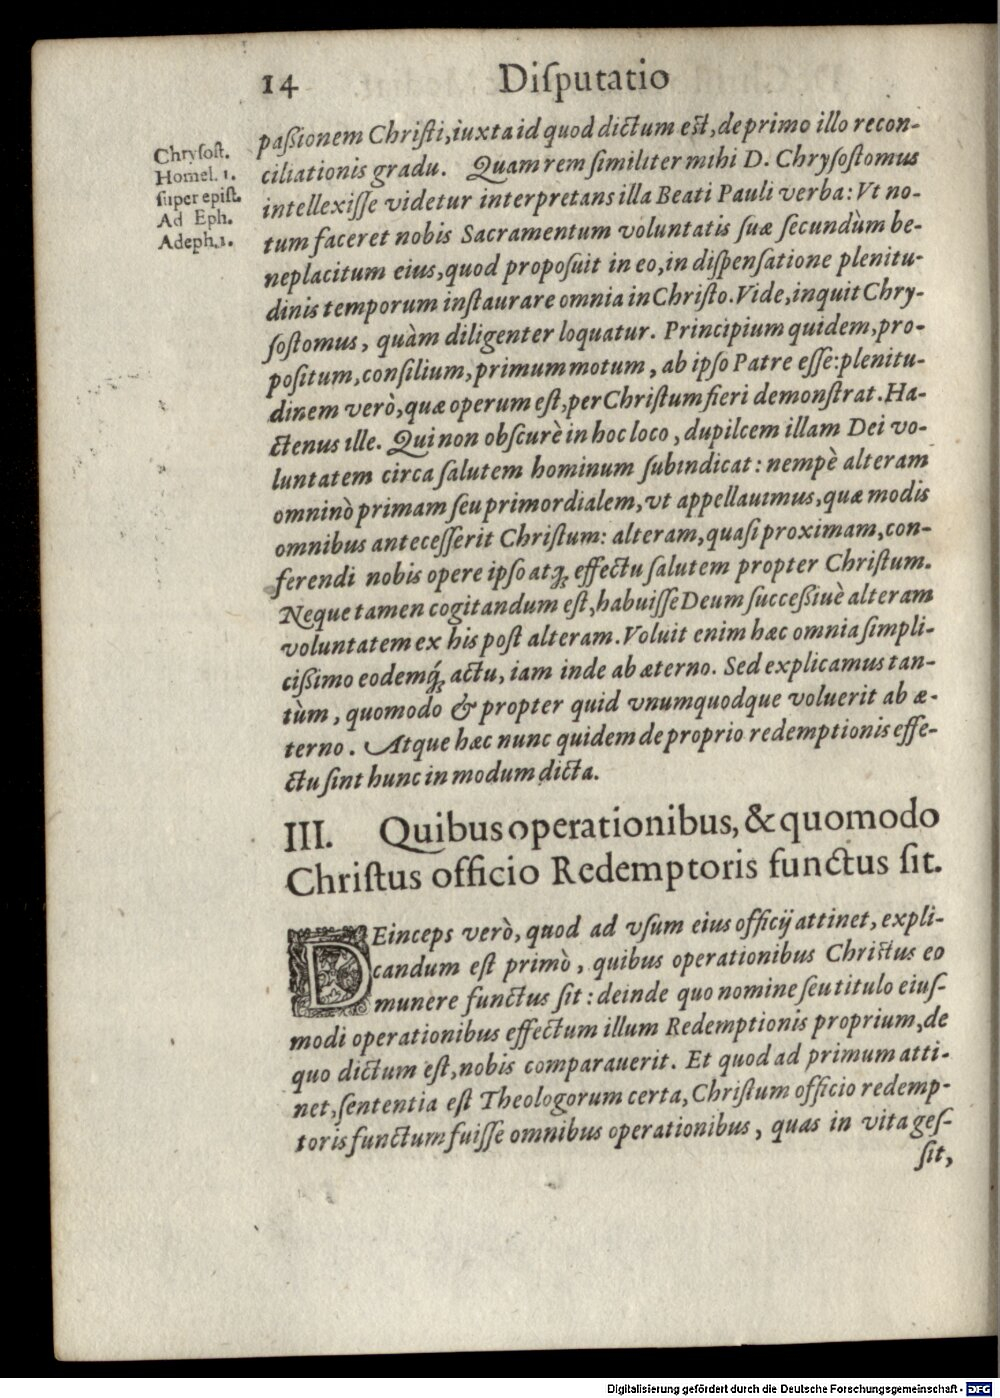 14 Diſputatio
Chryſoſt.
Homel. 1.
ſuper epiſt.
Ad Eph.
Adeph.1.
paßionem Chriſti,iuxta id quod dictum eſt,de primo illo recon-
ciliationis gradu. Quam rem ſimiliter mihi D. Chryſoſtomus
intellexiſſe videtur interpretans illa Beati Pauli verba: Vt no-
tum faceret nobis Sacramentum voluntatis ſuæ ſecundùm be-
neplacitum eius,quod propoſuit in eo,in diſpenſatione plenitu-
dinis temporum inſtaurare omnia in Chriſto.Vide,inquit Chry-
ſoſtomus, quàm diligenter loquatur. Principium quidem,pro-
poſitum,conſilium,primum motum, ab ipſo Patre eſſe:plenitu-
dinem verò,quæ operum eſt,per Chriſtum fieri demonſtrat.Ha-
ctenus ille. Qui non obſcurè in hoc loco, dupilcem illam Dei vo-
luntatem circa ſalutem hominum ſubindicat: nempè alteram
omninò primam ſeu primordialem,vt appellauimus,quæ modis
omnibus anteceſſerit Chriſtum: alteram,quaſi proximam,con-
ferendi nobis opere ipſo atq; effectu ſalutem propter Chriſtum.
Neque tamen cogitandum eſt,habuiſſe Deum ſucceßiuè alteram
voluntatem ex his poſt alteram.Voluit enim hæc omnia ſimpli-
cißimo eodemq́; actu, iam inde ab æterno. Sed explicamus tan-
tùm, quomodo & propter quid vnumquodque voluerit ab æ-
terno. Atque hæc nunc quidem de proprio redemptionis effe-
ctu ſint hunc in modum dicta.
III. Quibus operationibus, & quomodo
Chriſtus officio Redemptoris functus ſit.
DEinceps verò, quod ad vſum eius officij attinet, expli-
candum eſt primò, quibus operationibus Chriſtus eo
munere functus ſit: deinde quo nomine ſeu titulo eiuſ-
modi operationibus effectum illum Redemptionis proprium,de
quo dictum eſt,nobis comparauerit. Et quod ad primum atti-
net,ſententia eſt Theologorum certa,Chriſtum officio redemp-
toris functum fuiſſe omnibus operationibus, quas in vita geſ-
ſit,
Digitalisierung gefördert durch die Deutsche Forschungsgemeinschaft - DFG